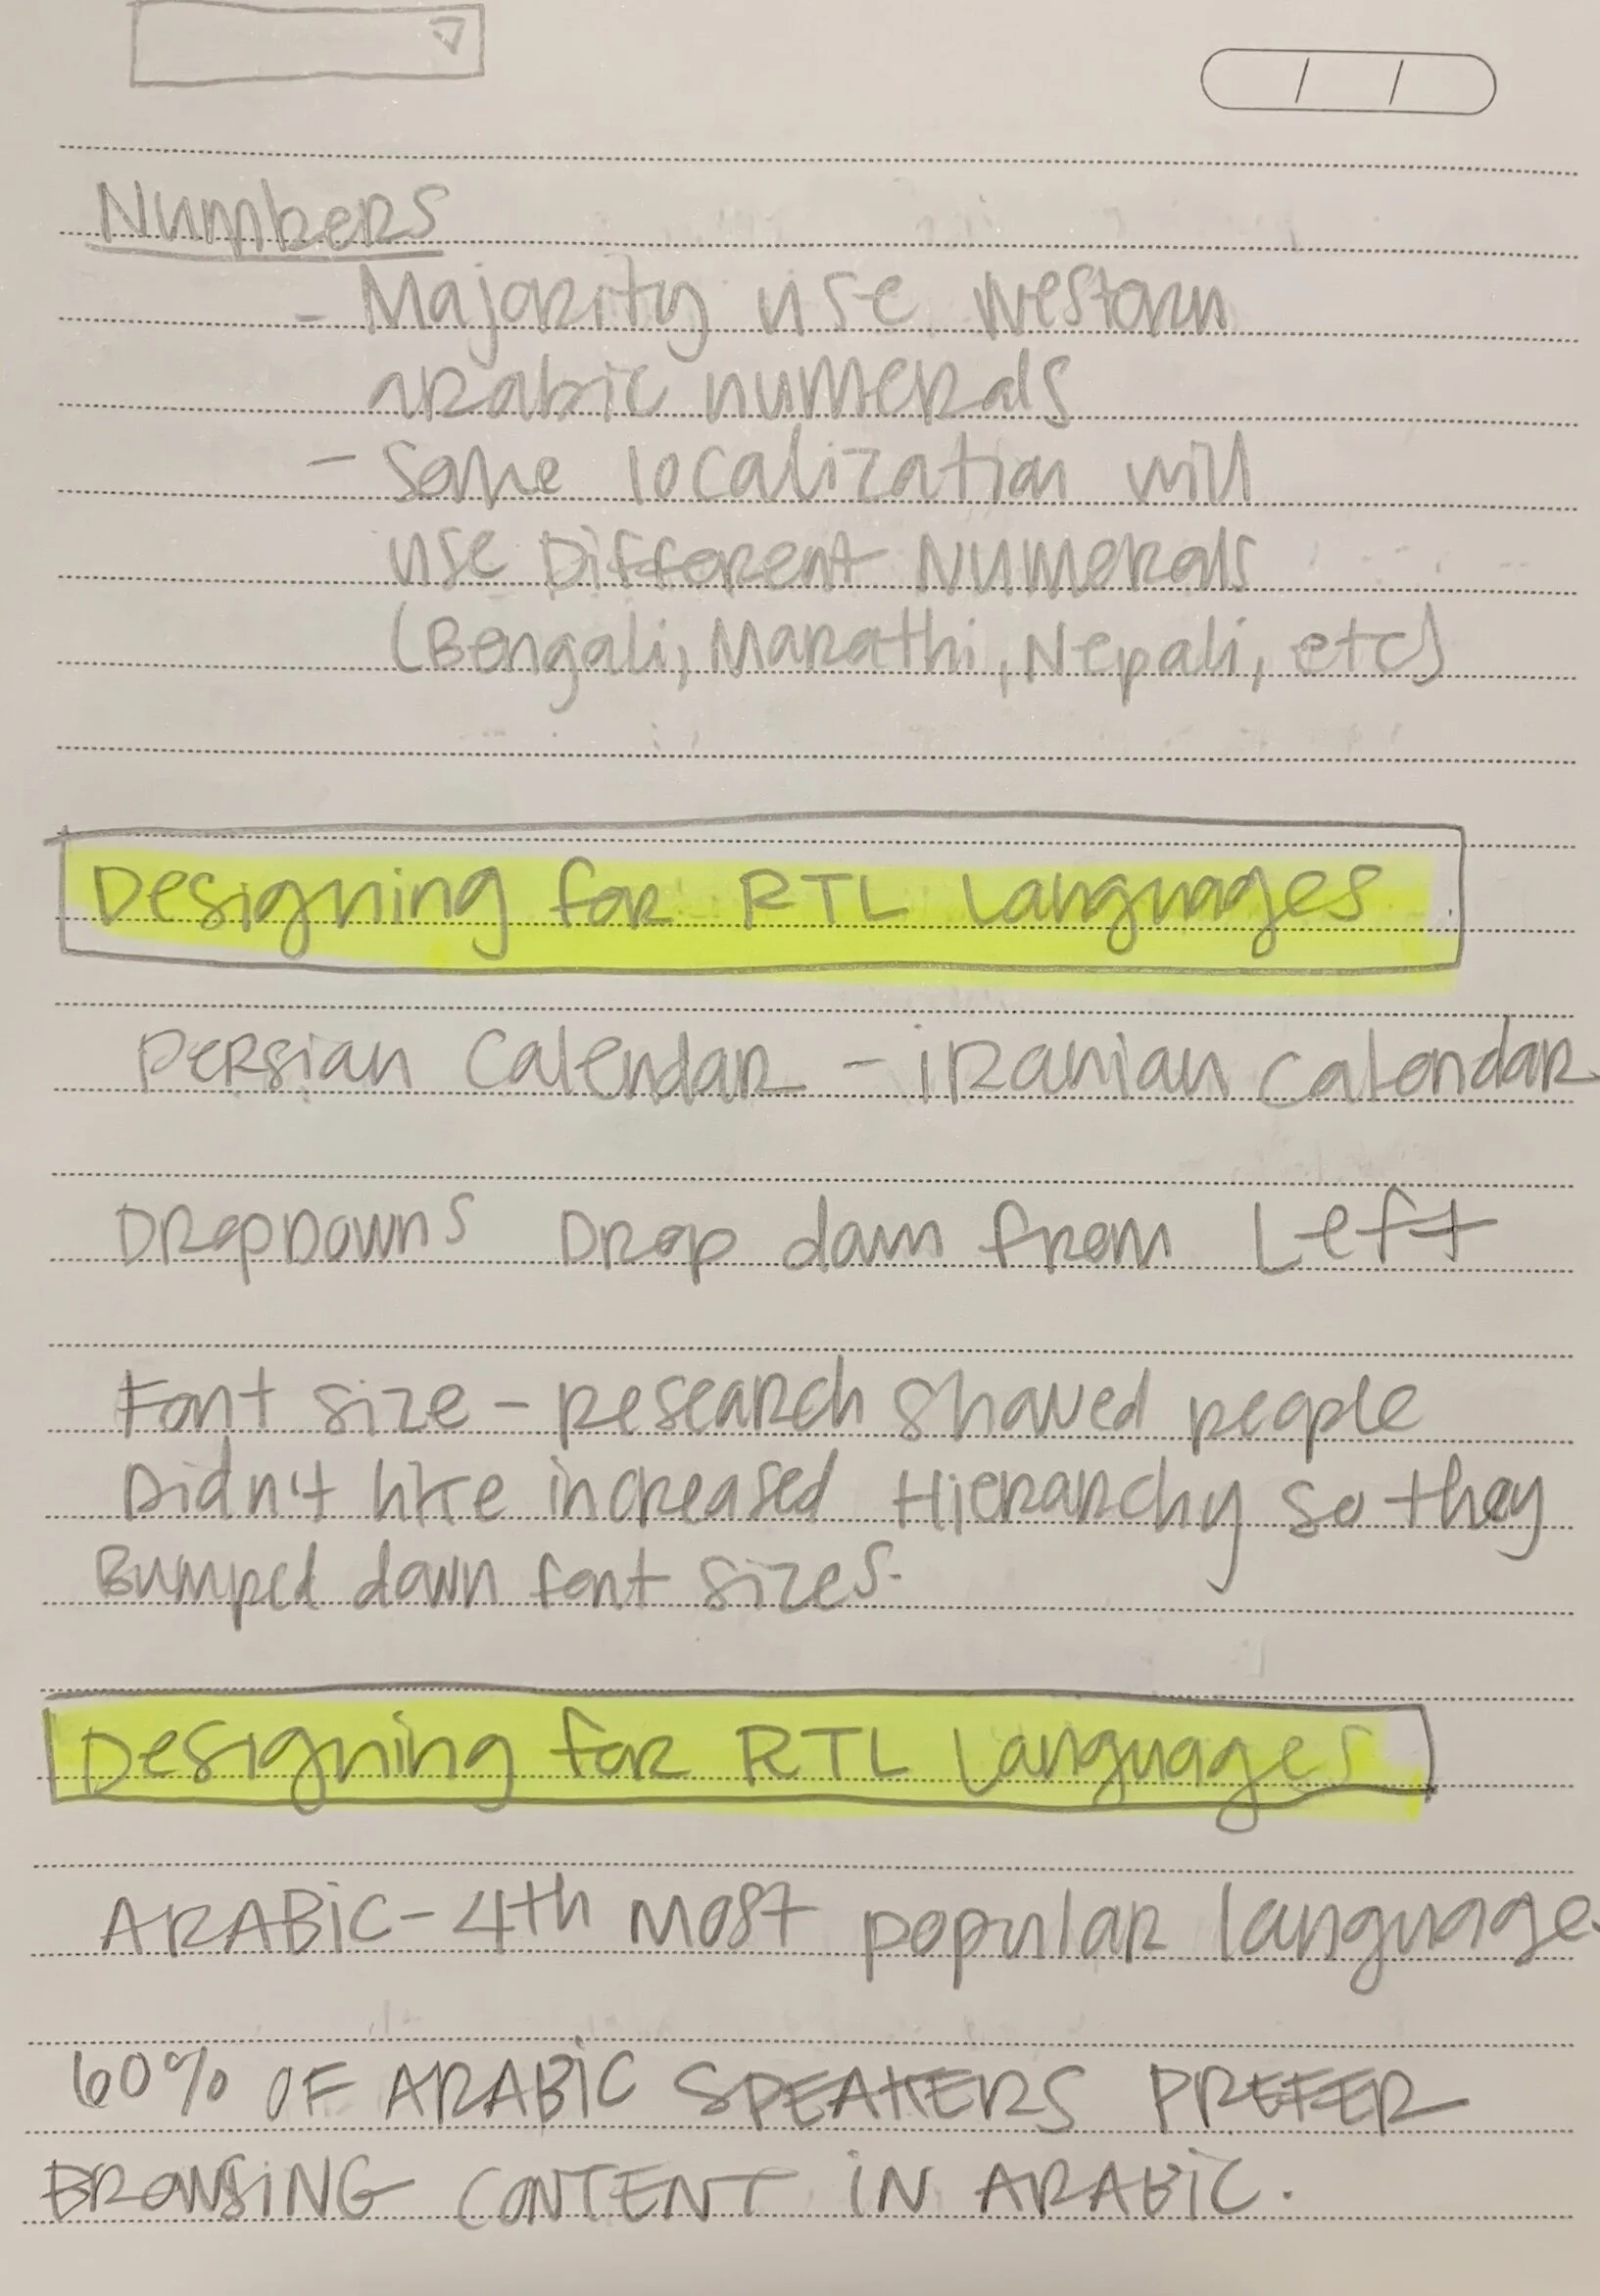 Numbers
- Majority use Western
arabic numerals
- Some localization will
use Different Numerals
(Bengali, Marathi, Nepali, etc)
Designing for RTL Languages
Persian Calendar - iranian Calendar
DropDowns Drop down from Left
Font size - research showed people
Didn't like increased Hierarchy so they
Bumped down font sizes.
Designing for RTL Languages
ARABiC - 4th Most popular language.
60% OF ARABiC SPEAKERS PREFER
BROWSiNG CONTENT iN ARABiC.